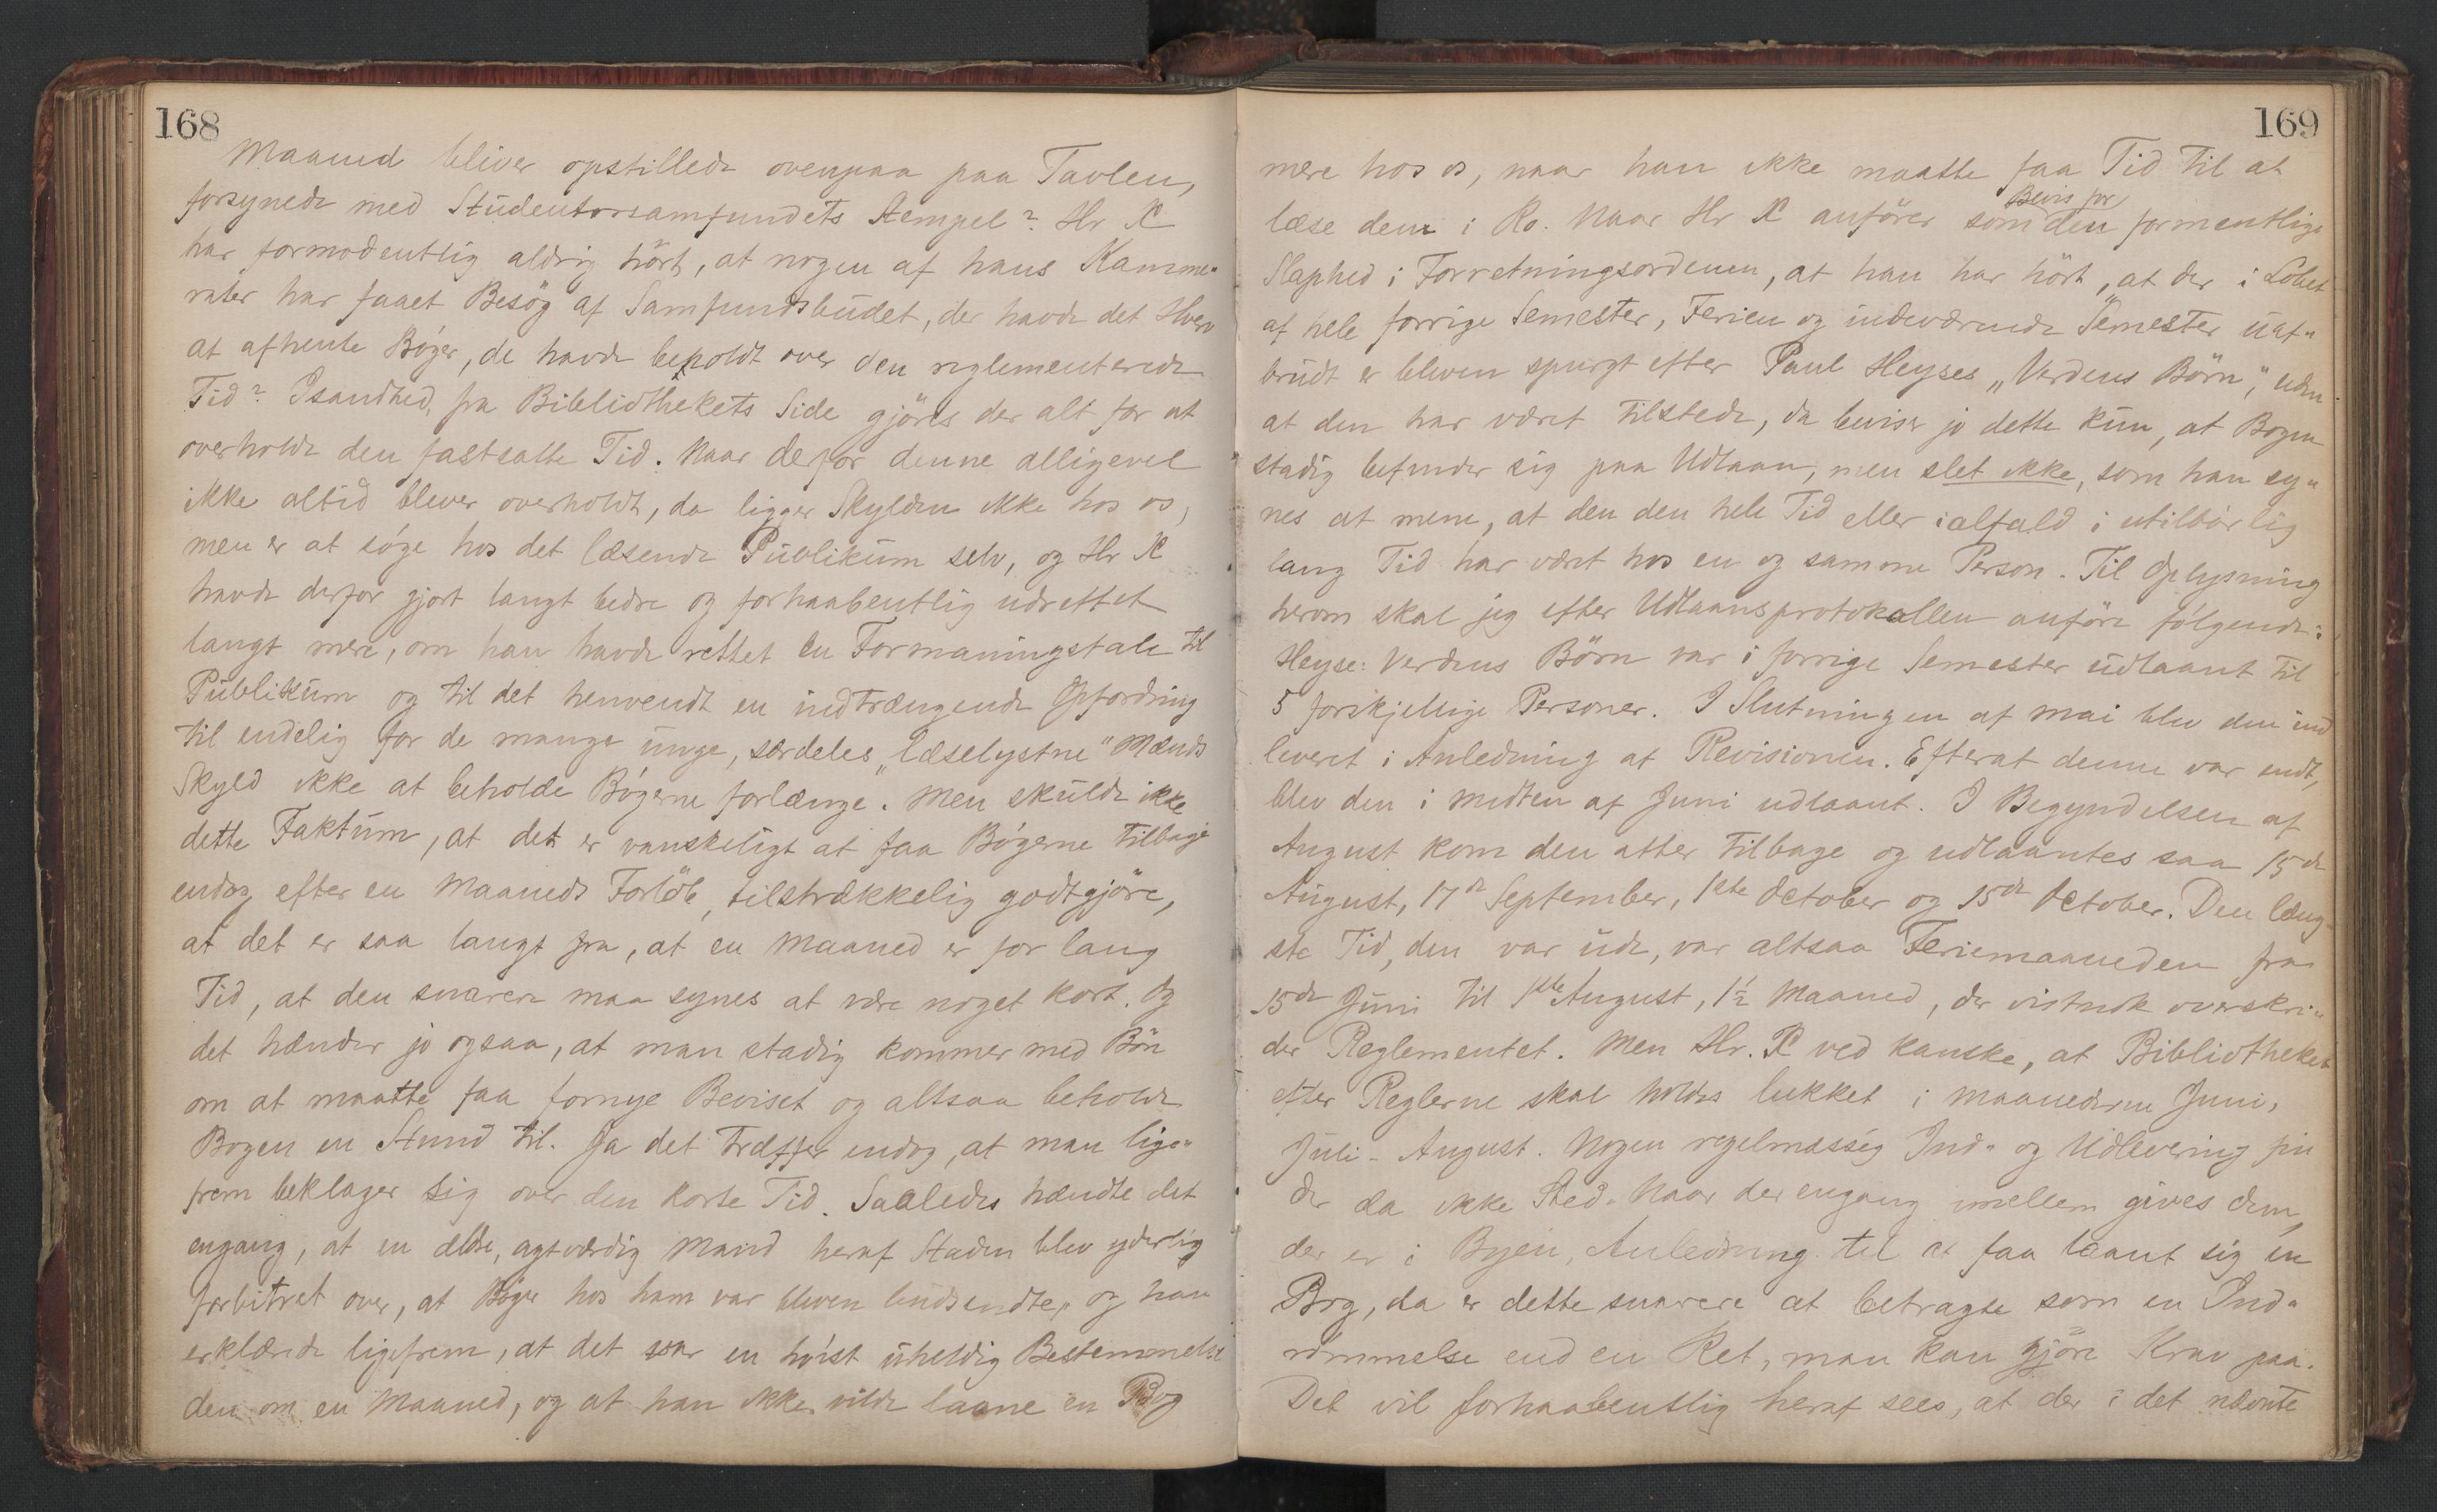 168
Maaned bliver opstillede ovenpaa paa Tavlen,
forsynede med Studentersamfundets Stempel? Hr X
har formodentlig aldrig hört, at nogen af hans Kamme-
rater har faaet Besög af Samfundsbudet, der havde det Hverv
at afhente Böger, de havde beholdt over den reglementerede
Tid? Isandhed, fra Bibliothekets Side gjöres der alt for at
overholde den fastsatte Tid. Naar derfor denne alligevel
ikke altid blever overholdt, da ligger Skylden ikke hos os,
men er at söge hos det læsende Publikum selv, og Hr X
havde derfor gjort langt bedre og forhaabentlig udrettet
langt mere, om han havde rettet en Formaningstale til
Publikum og til det henvendt en indtrængende Opfordring
til endelig for de mange unge, særdeles „læselystne" Mænds
Skyld ikke at beholde Bögerne forlænge. Men skulde ikke
dette Faktum, at det er vanskeligt at faa Bögerne tilbage
endog efter en Maaneds Forlöb, tilstrækkelig godtgjöre,
at det er saa langt fra, at en Maaned er for lang
Tid, at den snarere maa synes at være noget kort. Og
det hænder jo ogsaa, at man stadig kommer med Bön
om at maatte faa fornye Beviset og altsaa beholde
Bogen en Stund til. Ja det træffer endog, at man lige-
frem beklager sig over den korte Tid. Saaledes hændte det
engang, at en ældre, agtværdig Mand heraf Staden blev yderlig
forbitret over, at Böger hos ham var bleven budsendte, og han
erklærede ligefrem, at det var en höist uheldig Bestemmelse
den om en Maaned, og at han ikke vilde laane en Bog
169
mere hos os, naar han ikke maatte faa Tid til at
læse dem i Ro. Naar Hr X anförer som Bevis for den formentlige
Slaphed i Forretningsordenen, at han har hört, at der i Löbet
af hele forrige Semester, Ferien og indeværende Semester uaf-
brudt er bleven spurgt efter Paul Heyses „Verdens Börn", uden
at den har været tilstede, da beviser jo dette kun, at Bogen
stadig befinder sig paa Udlaan, men slet ikke, som han sy-
nes at mene, at den den hele Tid eller ialfald i utilbörlig
lang Tid har været hos en og samme Person. Til Oplysning
herom skal jeg efter Udlaansprotokollen anföre fölgende:
Heyse: Verdens Börn var i forrige Semester udlaant til
5 forskjellige Personer. I Slutningen af Mai blev den ind
leveret i Anledning af Revisionen. Efterat denne var endt,
blev den i Midten af Juni udlaant. I Begyndelsen af
August kom den atter tilbage og udlaantes saa 15de
August, 17de September, 1ste October og 15de October. Den læng-
ste Tid, den var ude, var altsaa Feriemaaneden fra
15de Juni til 1ste August, 1½ Maaned, der vistnok overskri-
der Reglementet. Men Hr. X ved kanske, at Bibliotheket
efter Reglerne skal holdes lukket i Maanederne Juni,
Juli - August. Nogen regelmæssig Ind- og Udlevering fin
der da ikke Sted. Naar der engang imellem gives dem,
der er i Byen, Anledning til at faa laant sig en
Bog, da er dette snarere at betragte som en Ind-
römmelse end en Ret, man kan gjöre Krav paa.
Det vil forhaabentlig heraf sees, at der i det nævnte